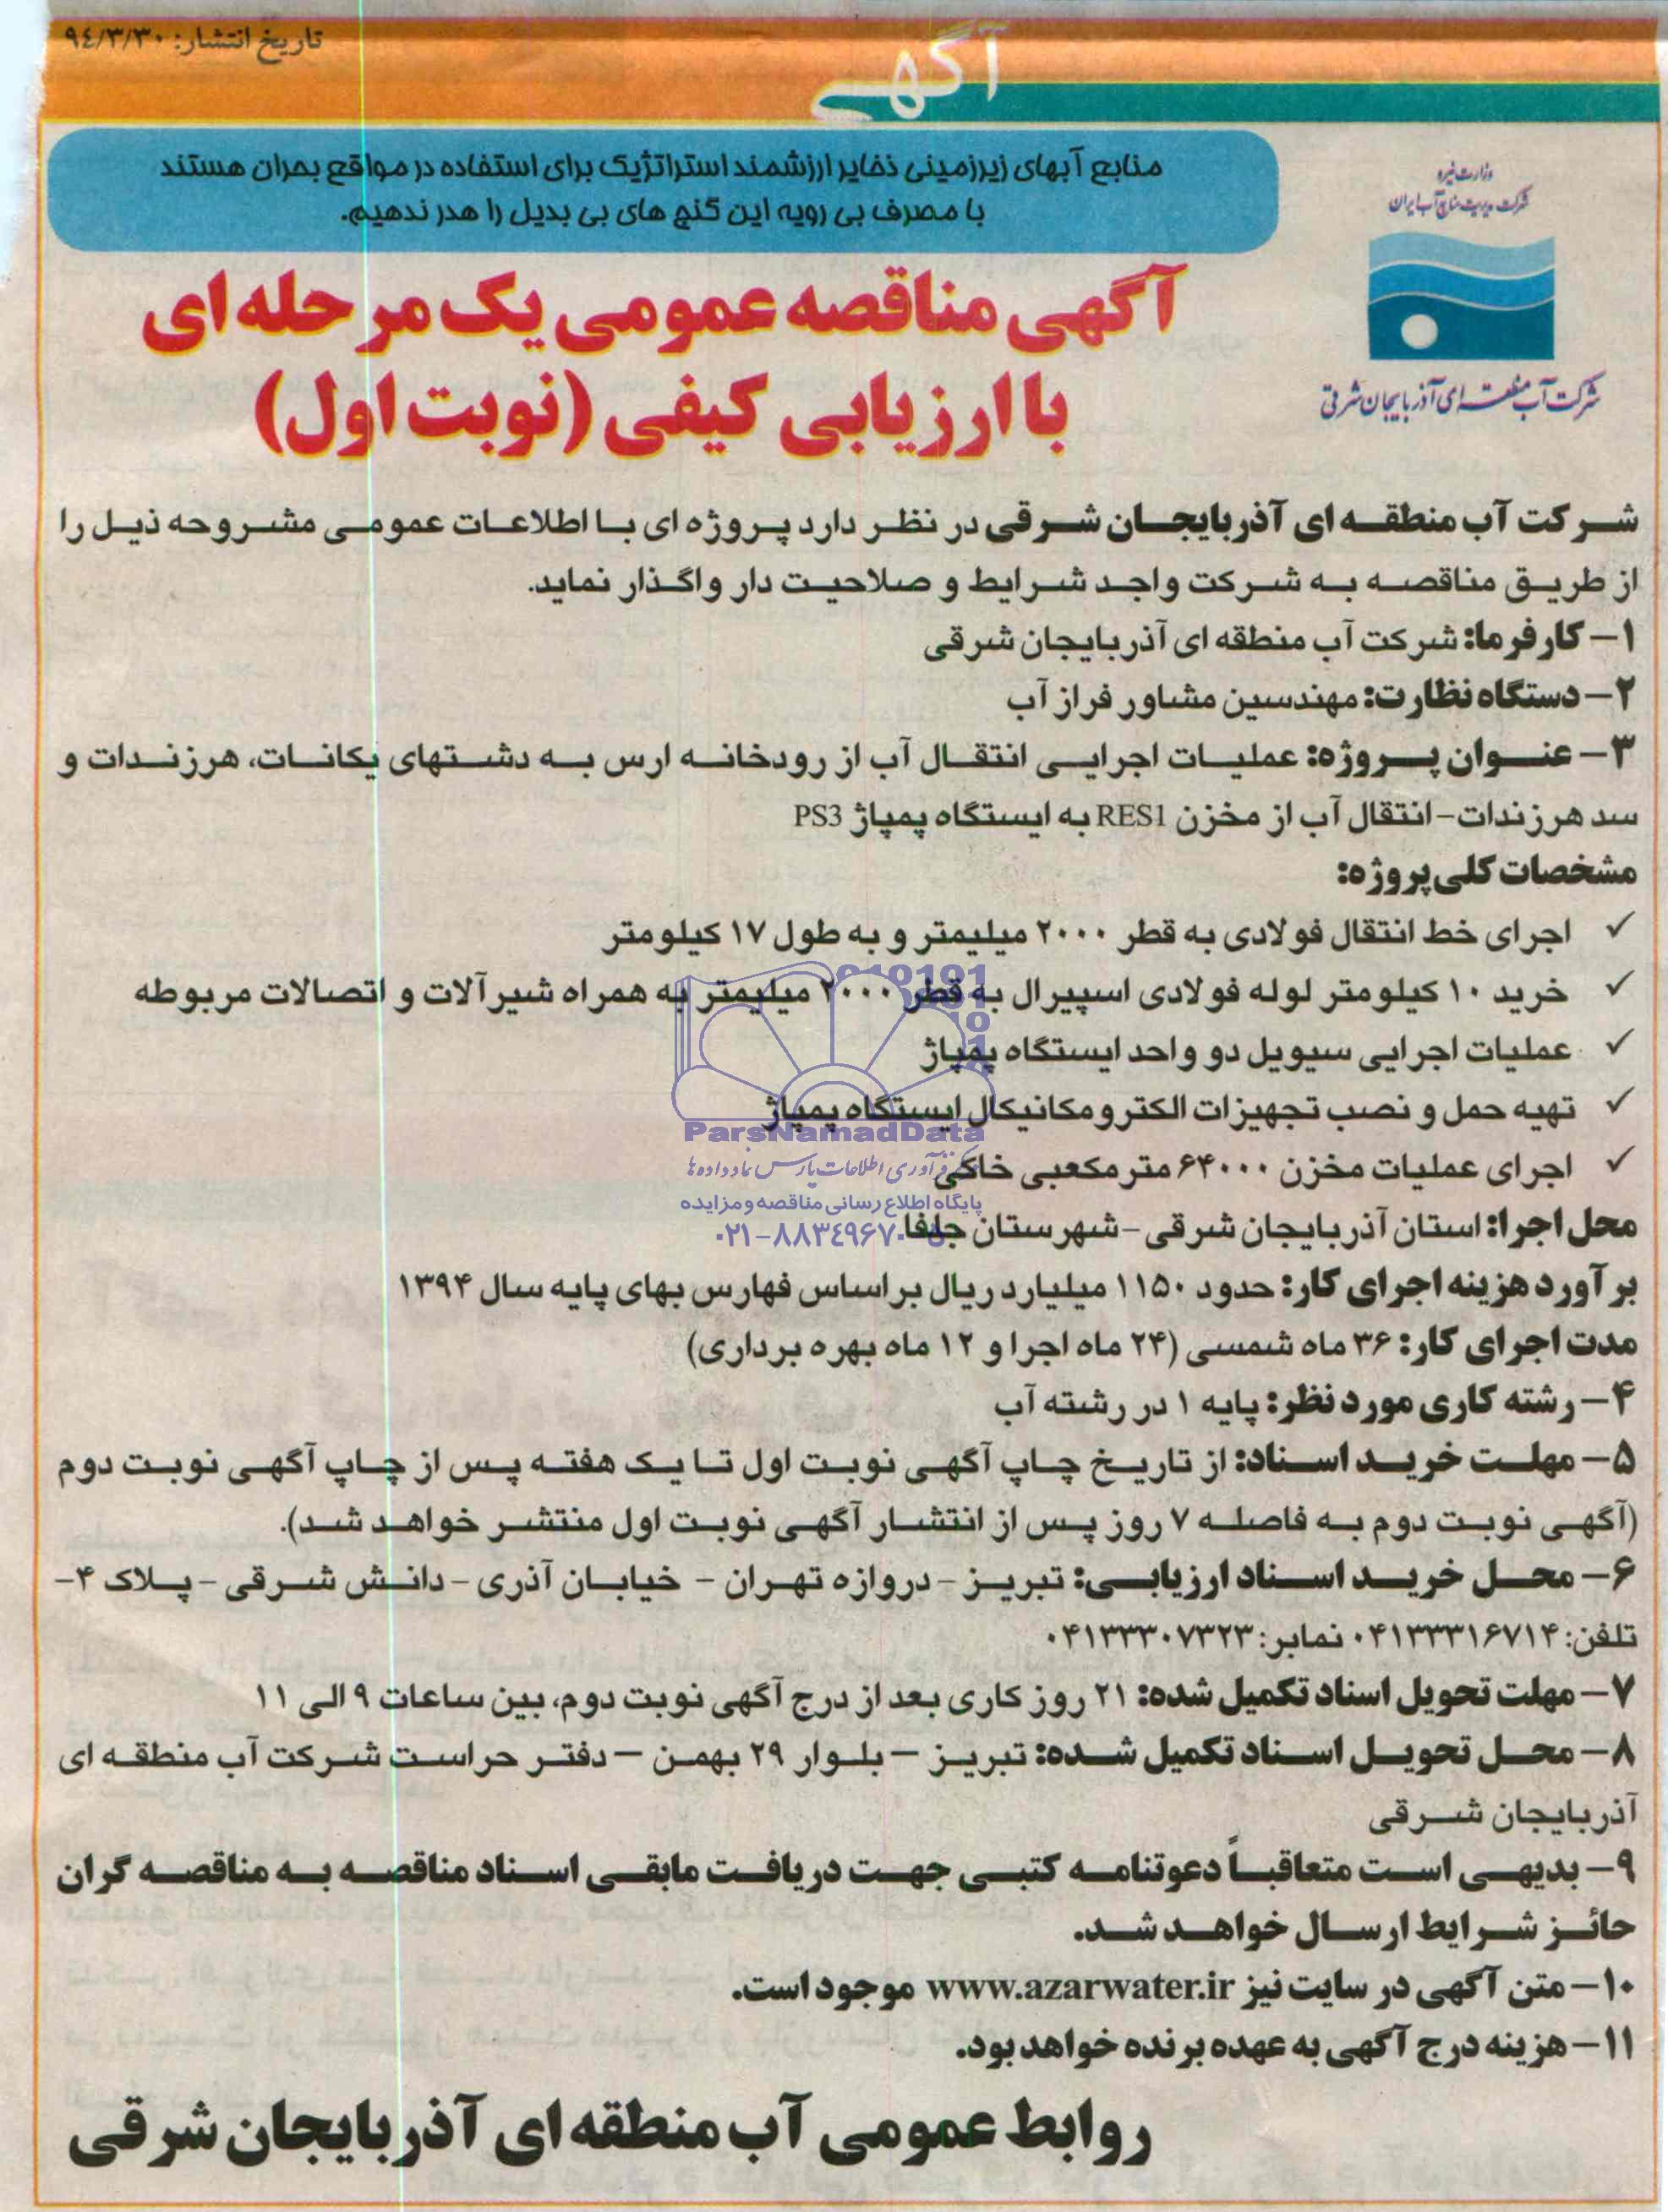 تاریخ انتشار: ۹٤/۳/۳۰
آگهی
وزارت نیرو
شرکت مدیریت منابع آب ایران
شرکت آب منطقه ای آذربایجان شرقی
منابع آبهای زیرزمینی ذخایر ارزشمند استراتژیک برای استفاده در مواقع بحران هستند
با مصرف بی رویه این گنج های بی بدیل را هدر ندهیم.
آگهی مناقصه عمومی یک مرحله ای
با ارزیابی کیفی (نوبت اول)
شرکت آب منطقه ای آذربایجان شرقی در نظر دارد پروژه ای با اطلاعات عمومی مشروحه ذیل را
از طریق مناقصه به شرکت واجد شرایط و صلاحیت دار واگذار نماید.
۱- کارفرما: شرکت آب منطقه ای آذربایجان شرقی
۲- دستگاه نظارت: مهندسین مشاور فراز آب
۳- عنوان پروژه: عملیات اجرایی انتقال آب از رودخانه ارس به دشتهای یکانات، هرزندات و
سد هرزندات- انتقال آب از مخزن RES1 به ایستگاه پمپاژ PS3
مشخصات کلی پروژه:
✓ اجرای خط انتقال فولادی به قطر ۲۰۰۰ میلیمتر و به طول ۱۷ کیلومتر
✓ خرید ۱۰ کیلومتر لوله فولادی اسپیرال به قطر ۲۰۰۰ میلیمتر به همراه شیرآلات و اتصالات مربوطه
✓ عملیات اجرایی سیویل دو واحد ایستگاه پمپاژ
✓ تهیه حمل و نصب تجهیزات الکترومکانیکال ایستگاه پمپاژ
ParsNamadData
✓ اجرای عملیات مخزن ۶۴۰۰۰ مترمکعبی خاکی
فرآوری اطلاعات پارس نماد داده ها
پایگاه اطلاع رسانی مناقصه و مزایده
۰۲۱-۸۸۳٤۹۶۷۰
محل اجرا: استان آذربایجان شرقی -شهرستان جلفا
برآورد هزینه اجرای کار: حدود ۱۱۵۰ میلیارد ریال براساس فهارس بهای پایه سال ۱۳۹۴
مدت اجرای کار: ۳۶ ماه شمسی (۲۴ ماه اجرا و ۱۲ ماه بهره برداری)
۴- رشته کاری مورد نظر: پایه ۱ در رشته آب
۵- مهلت خرید اسناد: از تاریخ چاپ آگهی نوبت اول تا یک هفته پس از چاپ آگهی نوبت دوم
(آگهی نوبت دوم به فاصله ۷ روز پس از انتشار آگهی نوبت اول منتشر خواهد شد).
۶- محل خرید اسناد ارزیابی: تبریز - دروازه تهران - خیابان آذری - دانش شرقی - پلاک ۴-
تلفن: ۰۴۱۳۳۳۱۶۷۱۴ نمابر: ۰۴۱۳۳۳۰۷۳۲۳
۷- مهلت تحویل اسناد تکمیل شده: ۲۱ روز کاری بعد از درج آگهی نوبت دوم، بین ساعات ۹ الی ۱۱
۸- محل تحویل اسناد تکمیل شده: تبریز – بلوار ۲۹ بهمن – دفتر حراست شرکت آب منطقه ای
آذربایجان شرقی
۹- بدیهی است متعاقباً دعوتنامه کتبی جهت دریافت مابقی اسناد مناقصه به مناقصه گران
حائز شرایط ارسال خواهد شد.
۱۰- متن آگهی در سایت نیز www.azarwater.ir موجود است.
۱۱- هزینه درج آگهی به عهده برنده خواهد بود.
روابط عمومی آب منطقه ای آذربایجان شرقی